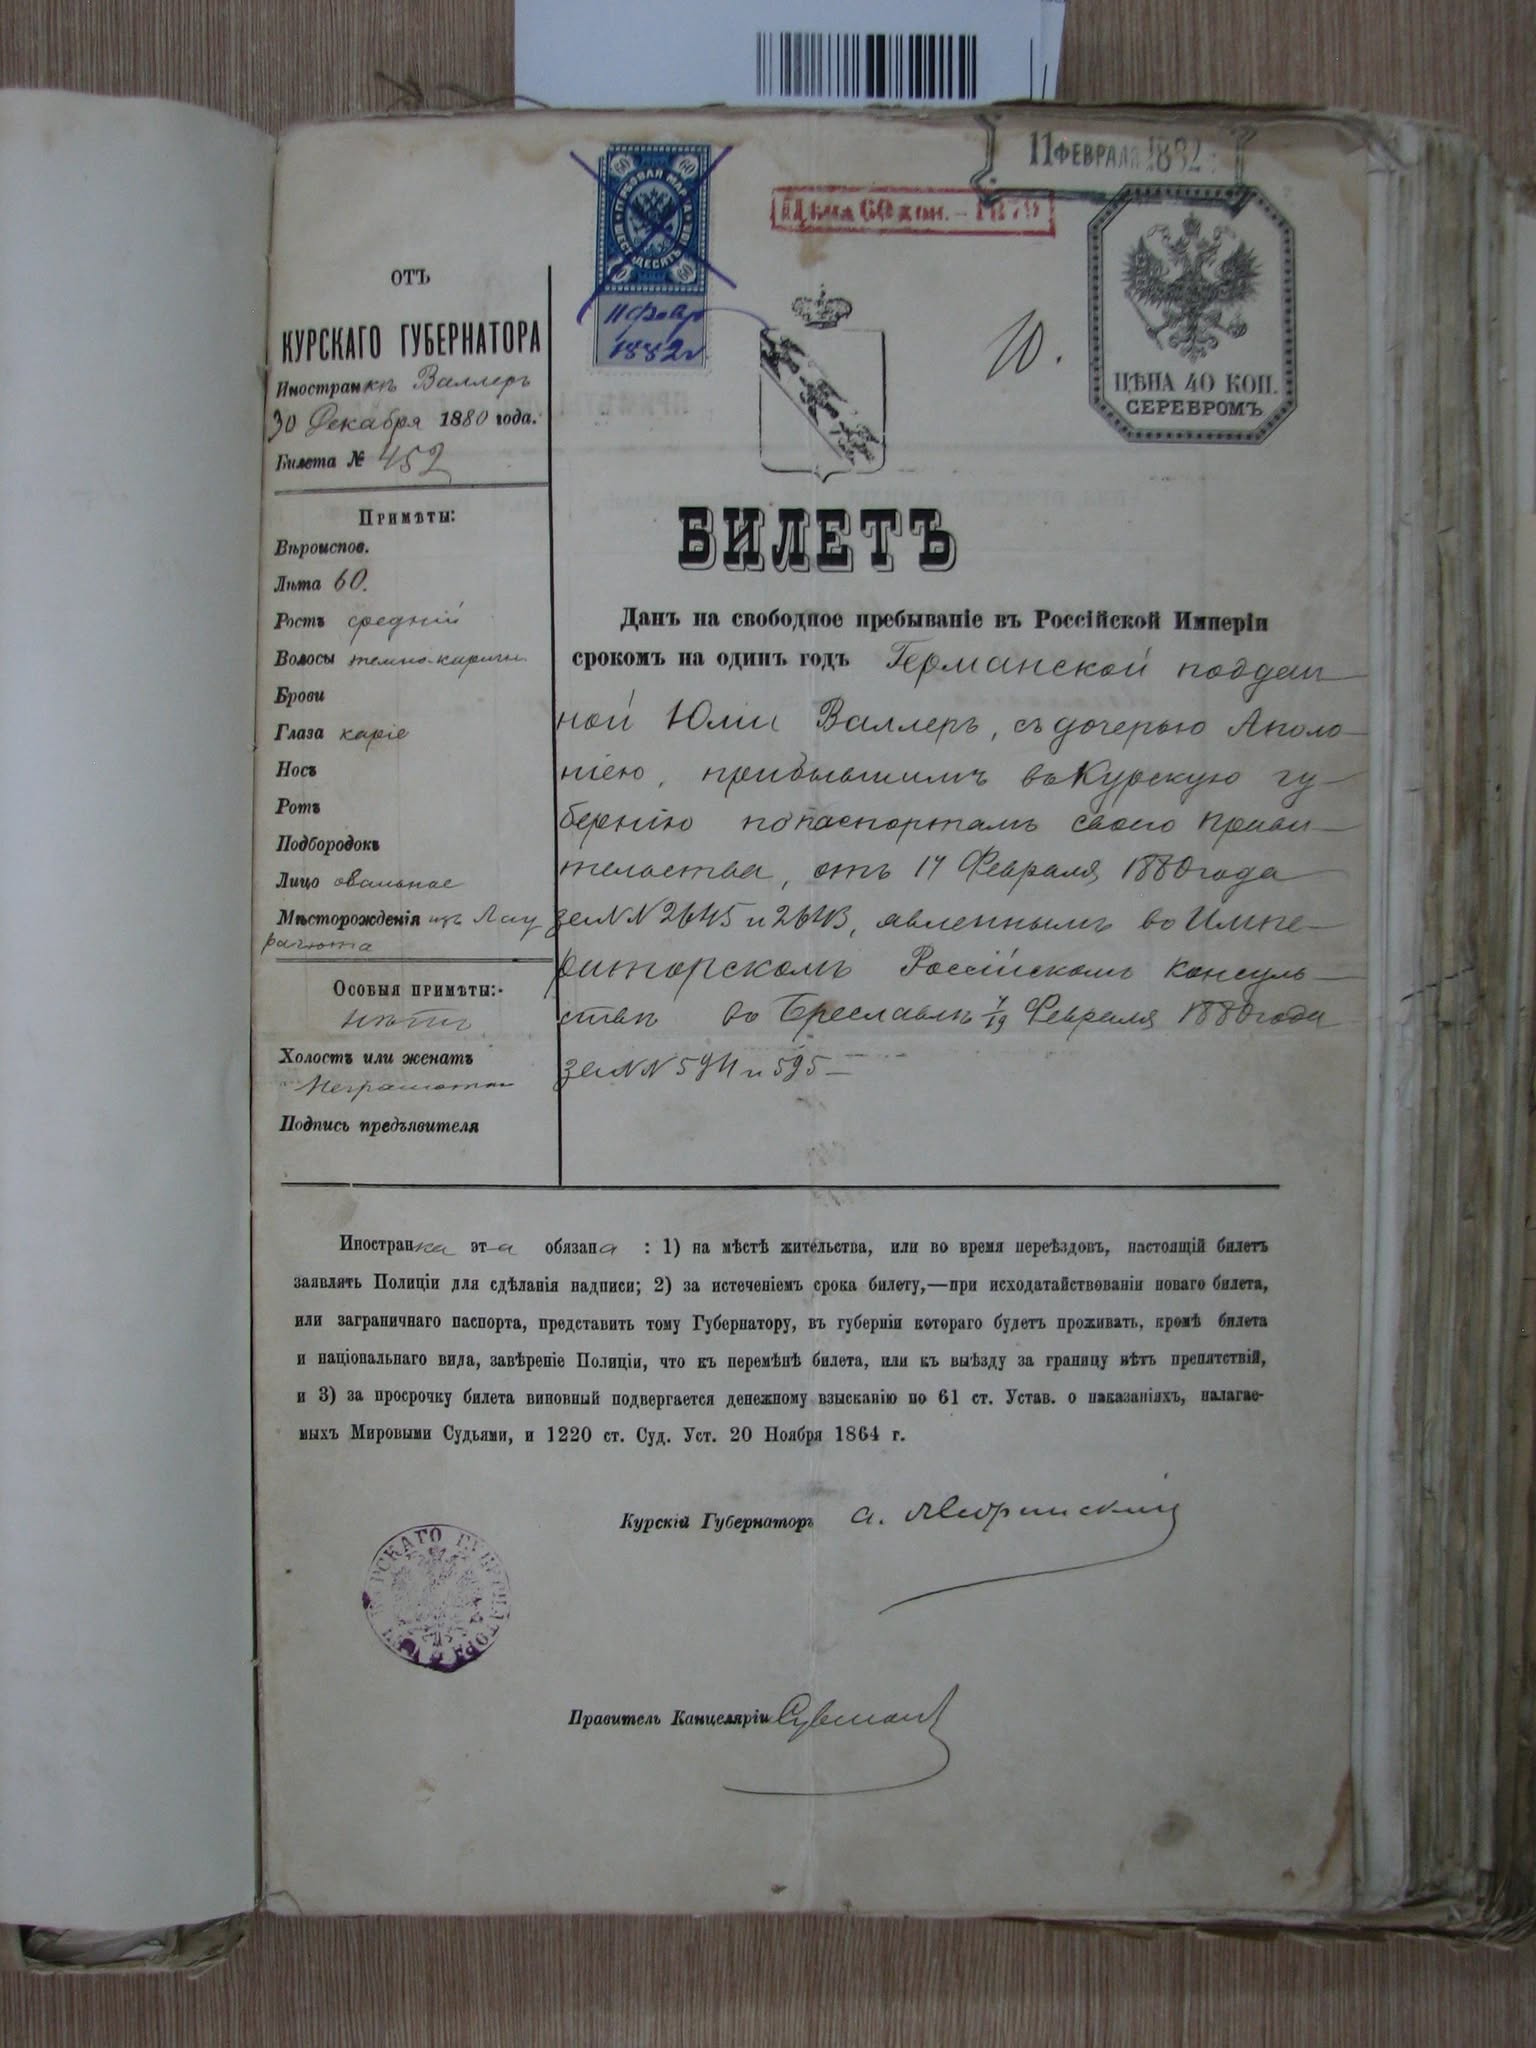 11 ФЕВРАЛЯ 1882
Цѣна 60 коп. – 1879
60 60
ГЕРБОВАЯ МАРКА
ШЕСТЬДЕСЯТЪ
60 60
11 февр
1882 г
10.
ЦѢНА 40 КОП.
СЕРЕБРОМЪ
ОТЪ
КУРСКАГО ГУБЕРНАТОРА
Иностранкѣ Валлеръ
30 Декабря 1880 года.
Билета № 452
Примѣты:
Вѣроиспов.
Лѣта 60.
Ростъ средній
Волосы темно-каріи
Брови
Глаза каріе
Носъ
Ротъ
Подбородокъ
Лицо овальное
Мѣсторожденія изъ
Особыя примѣты:
нѣтъ
Холостъ или женатъ
Неграмотна
Подпись предъявителя
БИЛЕТЪ
Данъ на свободное пребываніе въ Россійской Имперіи
срокомъ на одинъ годъ Германской поддан
ной Юліи Валлеръ, съ дочерью Аполо
ніею, прибывшимъ въ Курскую гу
бернію по паспортамъ своего прави
тельства, отъ 17 Февраля 1880 года
за NN 2645 и 2643, явленнымъ въ Импе
раторскомъ Россійскомъ консуль
ствѣ въ Бреславлѣ 7/19 Февраля 1880 года
за NN 594 и 595
Иностранка эта обязана : 1) на мѣстѣ жительства, или во время переѣздовъ, настоящій билетъ
заявлять Полиціи для сдѣланія надписи; 2) за истеченіемъ срока билету,—при исходатайствованіи новаго билета,
или заграничнаго паспорта, представить тому Губернатору, въ губерніи котораго будетъ проживать, кромѣ билета
и національнаго вида, завѣреніе Полиціи, что къ перемѣнѣ билета, или къ выѣзду за границу нѣтъ препятствій,
и 3) за просрочку билета виновный подвергается денежному взысканію по 61 ст. Устав. о наказаніяхъ, налагае-
мыхъ Мировыми Судьями, и 1220 ст. Суд. Уст. 20 Ноября 1864 г.
Курскій Губернаторъ
КУРСКАГО ГУБЕРНАТОРА
Правитель Канцеляріи